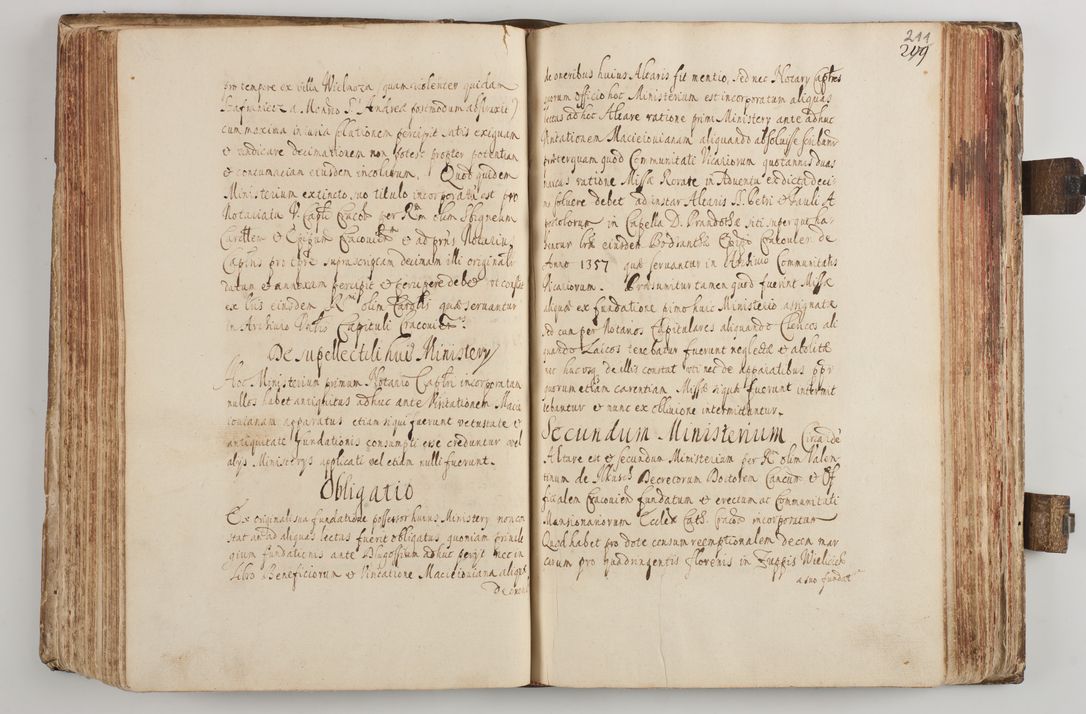 pro tempore ex villa Wielmoza (quam violenter quidam
Szafranietz a Mondio S. Andrea postmodum abstraxit)
cum maxima iniuria solationem percipit satis exiguam
et vindicare decimationem non potest propter potentiam
et contumaciam eiusdem incolarum. Quod quidem
Ministerium extincto suo titulo incorporatum est pro
Notariatu V. Capli Cracov per Rm olim Sbigneum
Cardlem et Epipum Cracovien et ad prns Notarius
Caplris pro tpre suprascriptam decimam illi originali
datam et annexam percipit et percipere debet ut constat
ex lris eiusdem Rmi olim Cardlis quae servantur
in Archivo Vnlis Capituli Cracovien:
De supellectili huius Ministerÿ
Hoc Ministerium primum Notario Capltri incorporatum
nullos habet antiquitus adhuc ante Visitationem Macie
iovianam apparatus etiam siqui fuerunt vetustate et
antiquitate fundationis consumpti esse creduntur vel
alÿs Ministerÿs applicati vel etiam nulli fuerunt.
Obligatio
Ex originali sua fundatione possessor huius Ministerÿ non con
stat an ad aliquas lectas fuerit obligatus quoniam privile
gium fundationis ante Dlugossium adhuc serÿt nec in
Libro Beneficiorum et Visitatione Macieioviana aliqua
De oneri
211
209
de oneribus huius Altaris fit mentio, sed nec Notarÿ Capltres
quorum officio hoc Ministerium est incorporatum aliquas
lectas ad hoc Altare ratione primi Ministerÿ ante adhuc
Visitationem Macieiovianam aliquando absolvisse scribuntur
praeterquam quod Communitati Vicariorum quotannis duas
marcas ratione Missae Rorate in Adventu ex dicta deci
ma solvere debet ad instar Altaris SS. Petri et Pauli A
postolorum in Capella D. Prandothae siti super quo ha
bentur lrae eiusdem Bodzanthae Epipi Cracovien: de
Anno 1357 quae servantur in Archivio Communitatis
Vicariorum. Praesumitur tamen quod fuerint Missae
aliquae ex fundatione primo huic Ministerio assignatae
sed cum per Notarios Capitulares aliquando Clericos ali
quando Laicos tenebatur fuerunt neglectae et abolitae
nec hucusq. de illis constat uti nec de Apparatibus ppr
quorum etiam carentiam Missae siquae fuerunt intermit
tebantur et nunc ex oblivione intermittuntur.
Secundum Ministerium Circa idē
Altare est et secundum Ministerium per Rm olim Valen
tinum de Ilkusch Decretorum Doctorem Cancum et Of
ficialem Cracovien fundatum et erectum ac Communitati
Mansionariorum Ecclae Cath. Cracov incorporatum
Quod habet pro dote censum reemptionalem decem mar
carum pro quadringentis florenis in Zuppis Wieliciē
a suo fundat